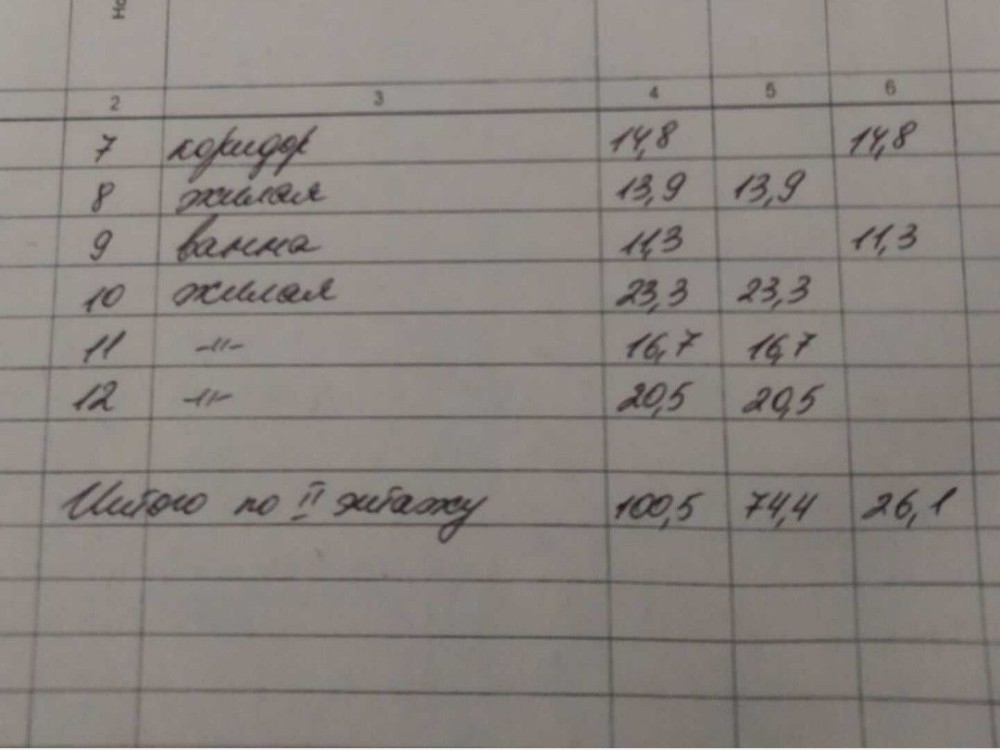 Но
2 3 4 5 6
7 коридор 14,8 14,8
8 жилая 13,9 13,9
9 ванна 11,3 11,3
10 жилая 23,3 23,3
11 -"- 16,7 16,7
12 -"- 20,5 20,5
Итого по II этажу 100,5 74,4 26,1